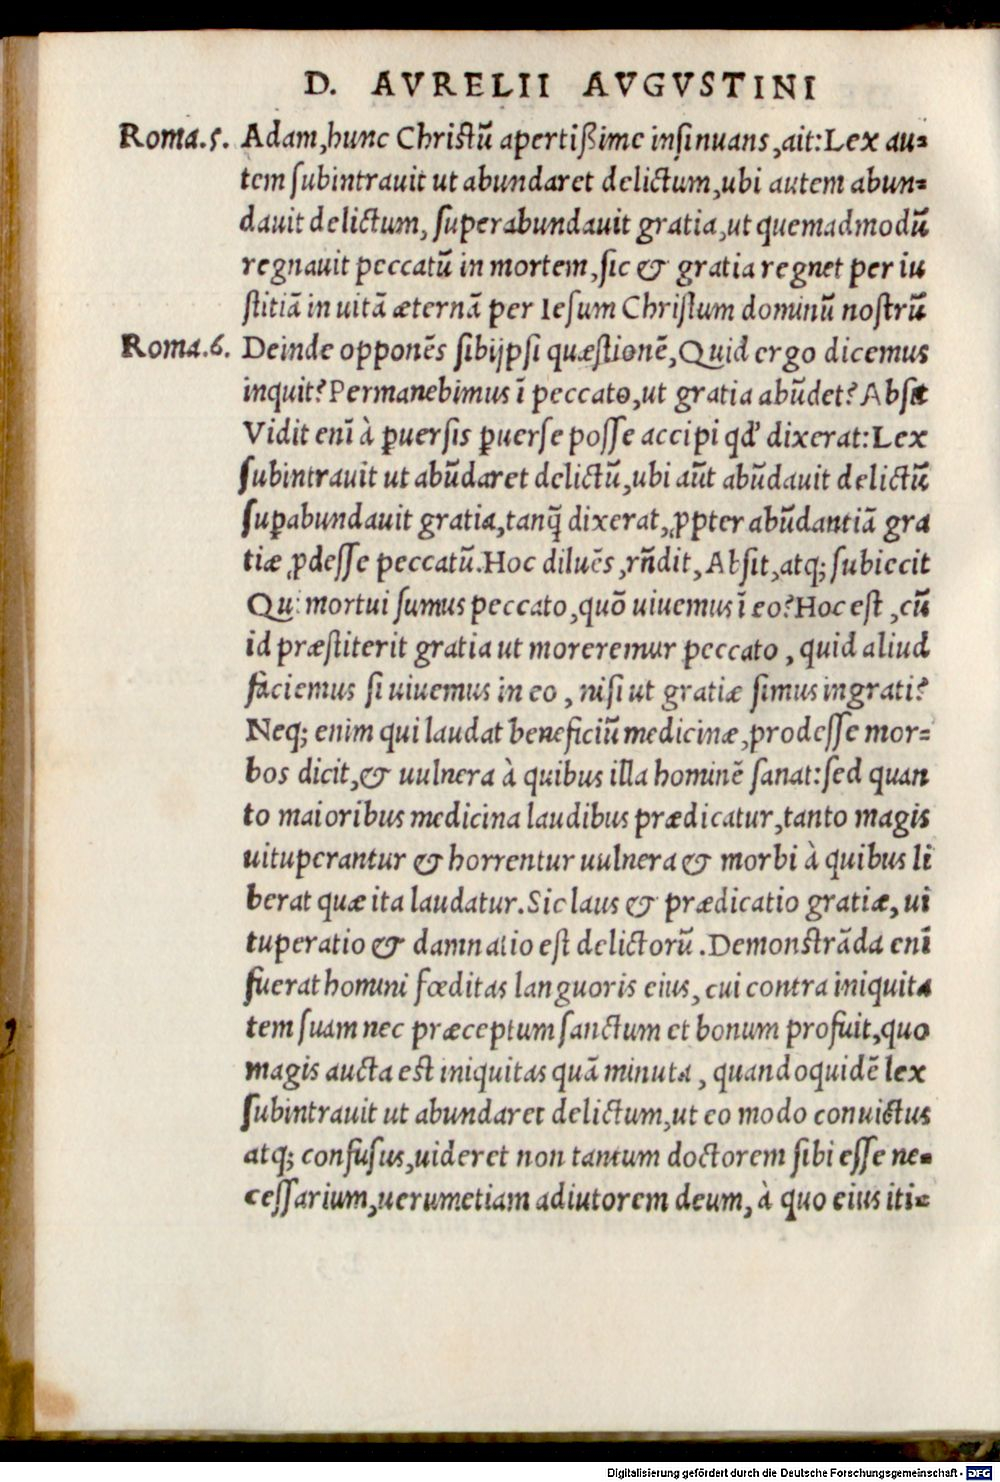 D. AVRELII AVGVSTINI
Roma.5. Adam,hunc Christū apertißime insinuans,ait:Lex au-
tem subintrauit ut abundaret delictum,ubi autem abun-
dauit delictum, superabundauit gratia,ut quemadmodū
regnauit peccatū in mortem,sic & gratia regnet per iu
stitiā in uitā æternā per Iesum Christum dominū nostrū
Roma.6. Deinde opponēs sibijpsi quæstionē,Quid ergo dicemus
inquit?Permanebimus ī peccato,ut gratia abūdet?Absit
Vidit enī à ꝑuersis ꝑuerse posse accipi qd' dixerat:Lex
subintrauit ut abūdaret delictū,ubi aūt abūdauit delictū
suꝑabundauit gratia,tanq̄ dixerat,ꝓpter abūdantiā gra
tiæ ꝓdesse peccatū.Hoc diluēs,rñdit,Absit,atq; subiecit
Qui mortui sumus peccato,quō uiuemus ī eo?Hoc est,cū
id præstiterit gratia ut moreremur peccato, quid aliud
faciemus si uiuemus in eo, nisi ut gratiæ simus ingrati?
Neq; enim qui laudat beneficiū medicinæ,prodesse mor-
bos dicit,& uulnera à quibus illa hominē sanat:sed quan
to maioribus medicina laudibus prædicatur,tanto magis
uituperantur & horrentur uulnera & morbi à quibus li
berat quæ ita laudatur.Sic laus & prædicatio gratiæ,ui
tuperatio & damnatio est delictorū.Demonstrāda enī
fuerat homini fœditas languoris eius, cui contra iniquita
tem suam nec præceptum sanctum et bonum profuit,quo
magis aucta est iniquitas quā minuta, quandoquidē lex
subintrauit ut abundaret delictum,ut eo modo conuictus
atq; confusus,uideret non tantum doctorem sibi esse ne-
cessarium,uerumetiam adiutorem deum, à quo eius iti-
Digitalisierung gefördert durch die Deutsche Forschungsgemeinschaft - DFG